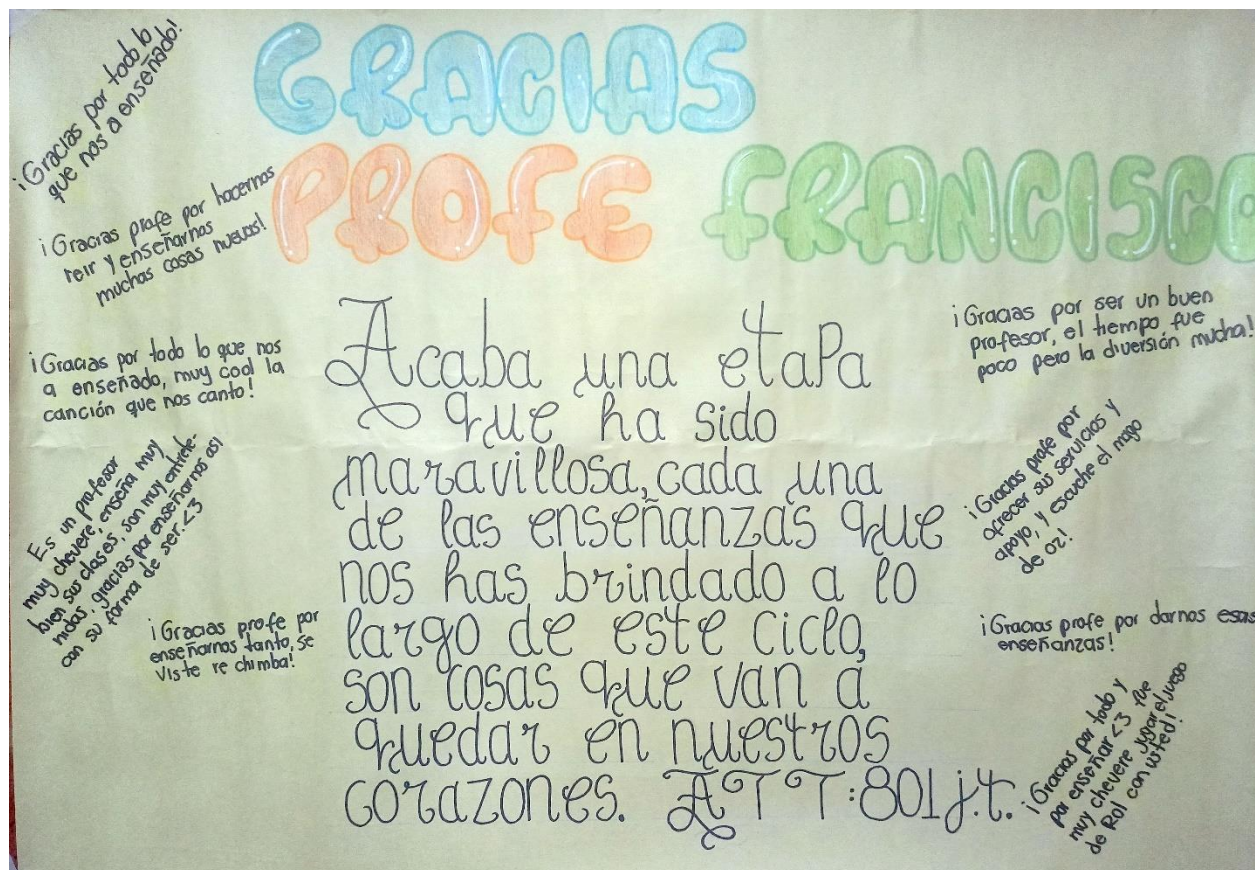 GRACIAS
PROFE FRANCISCO
¡Gracias por todo lo
que nos a enseñado!
¡Gracias profe por hacernos
reir y enseñarnos
muchas cosas nuevas!
¡Gracias por todo lo que nos
a enseñado, muy cool la
canción que nos canto!
Es un profesor
muy chevere, enseña muy
bien sus clases, son muy entrete-
nidas, gracias por enseñarnos asi
con su forma de ser <3
¡Gracias profe por
enseñarnos tanto, se
viste re chimba!
Acaba una etapa
que ha sido
maravillosa, cada una
de las enseñanzas que
nos has brindado a lo
largo de este ciclo,
son cosas que van a
quedar en nuestros
corazones. ATT:801 j.t.
¡Gracias por ser un buen
profesor, el tiempo fue
poco pero la diversión mucha!
¡Gracias profe por
ofrecer sus servicios y
apoyo, y escuche el mago
de oz!
¡Gracias profe por darnos esas
enseñanzas!
¡Gracias por todo y
por enseñar <3 fue
muy chevere jugar el juego
de Rol con usted!